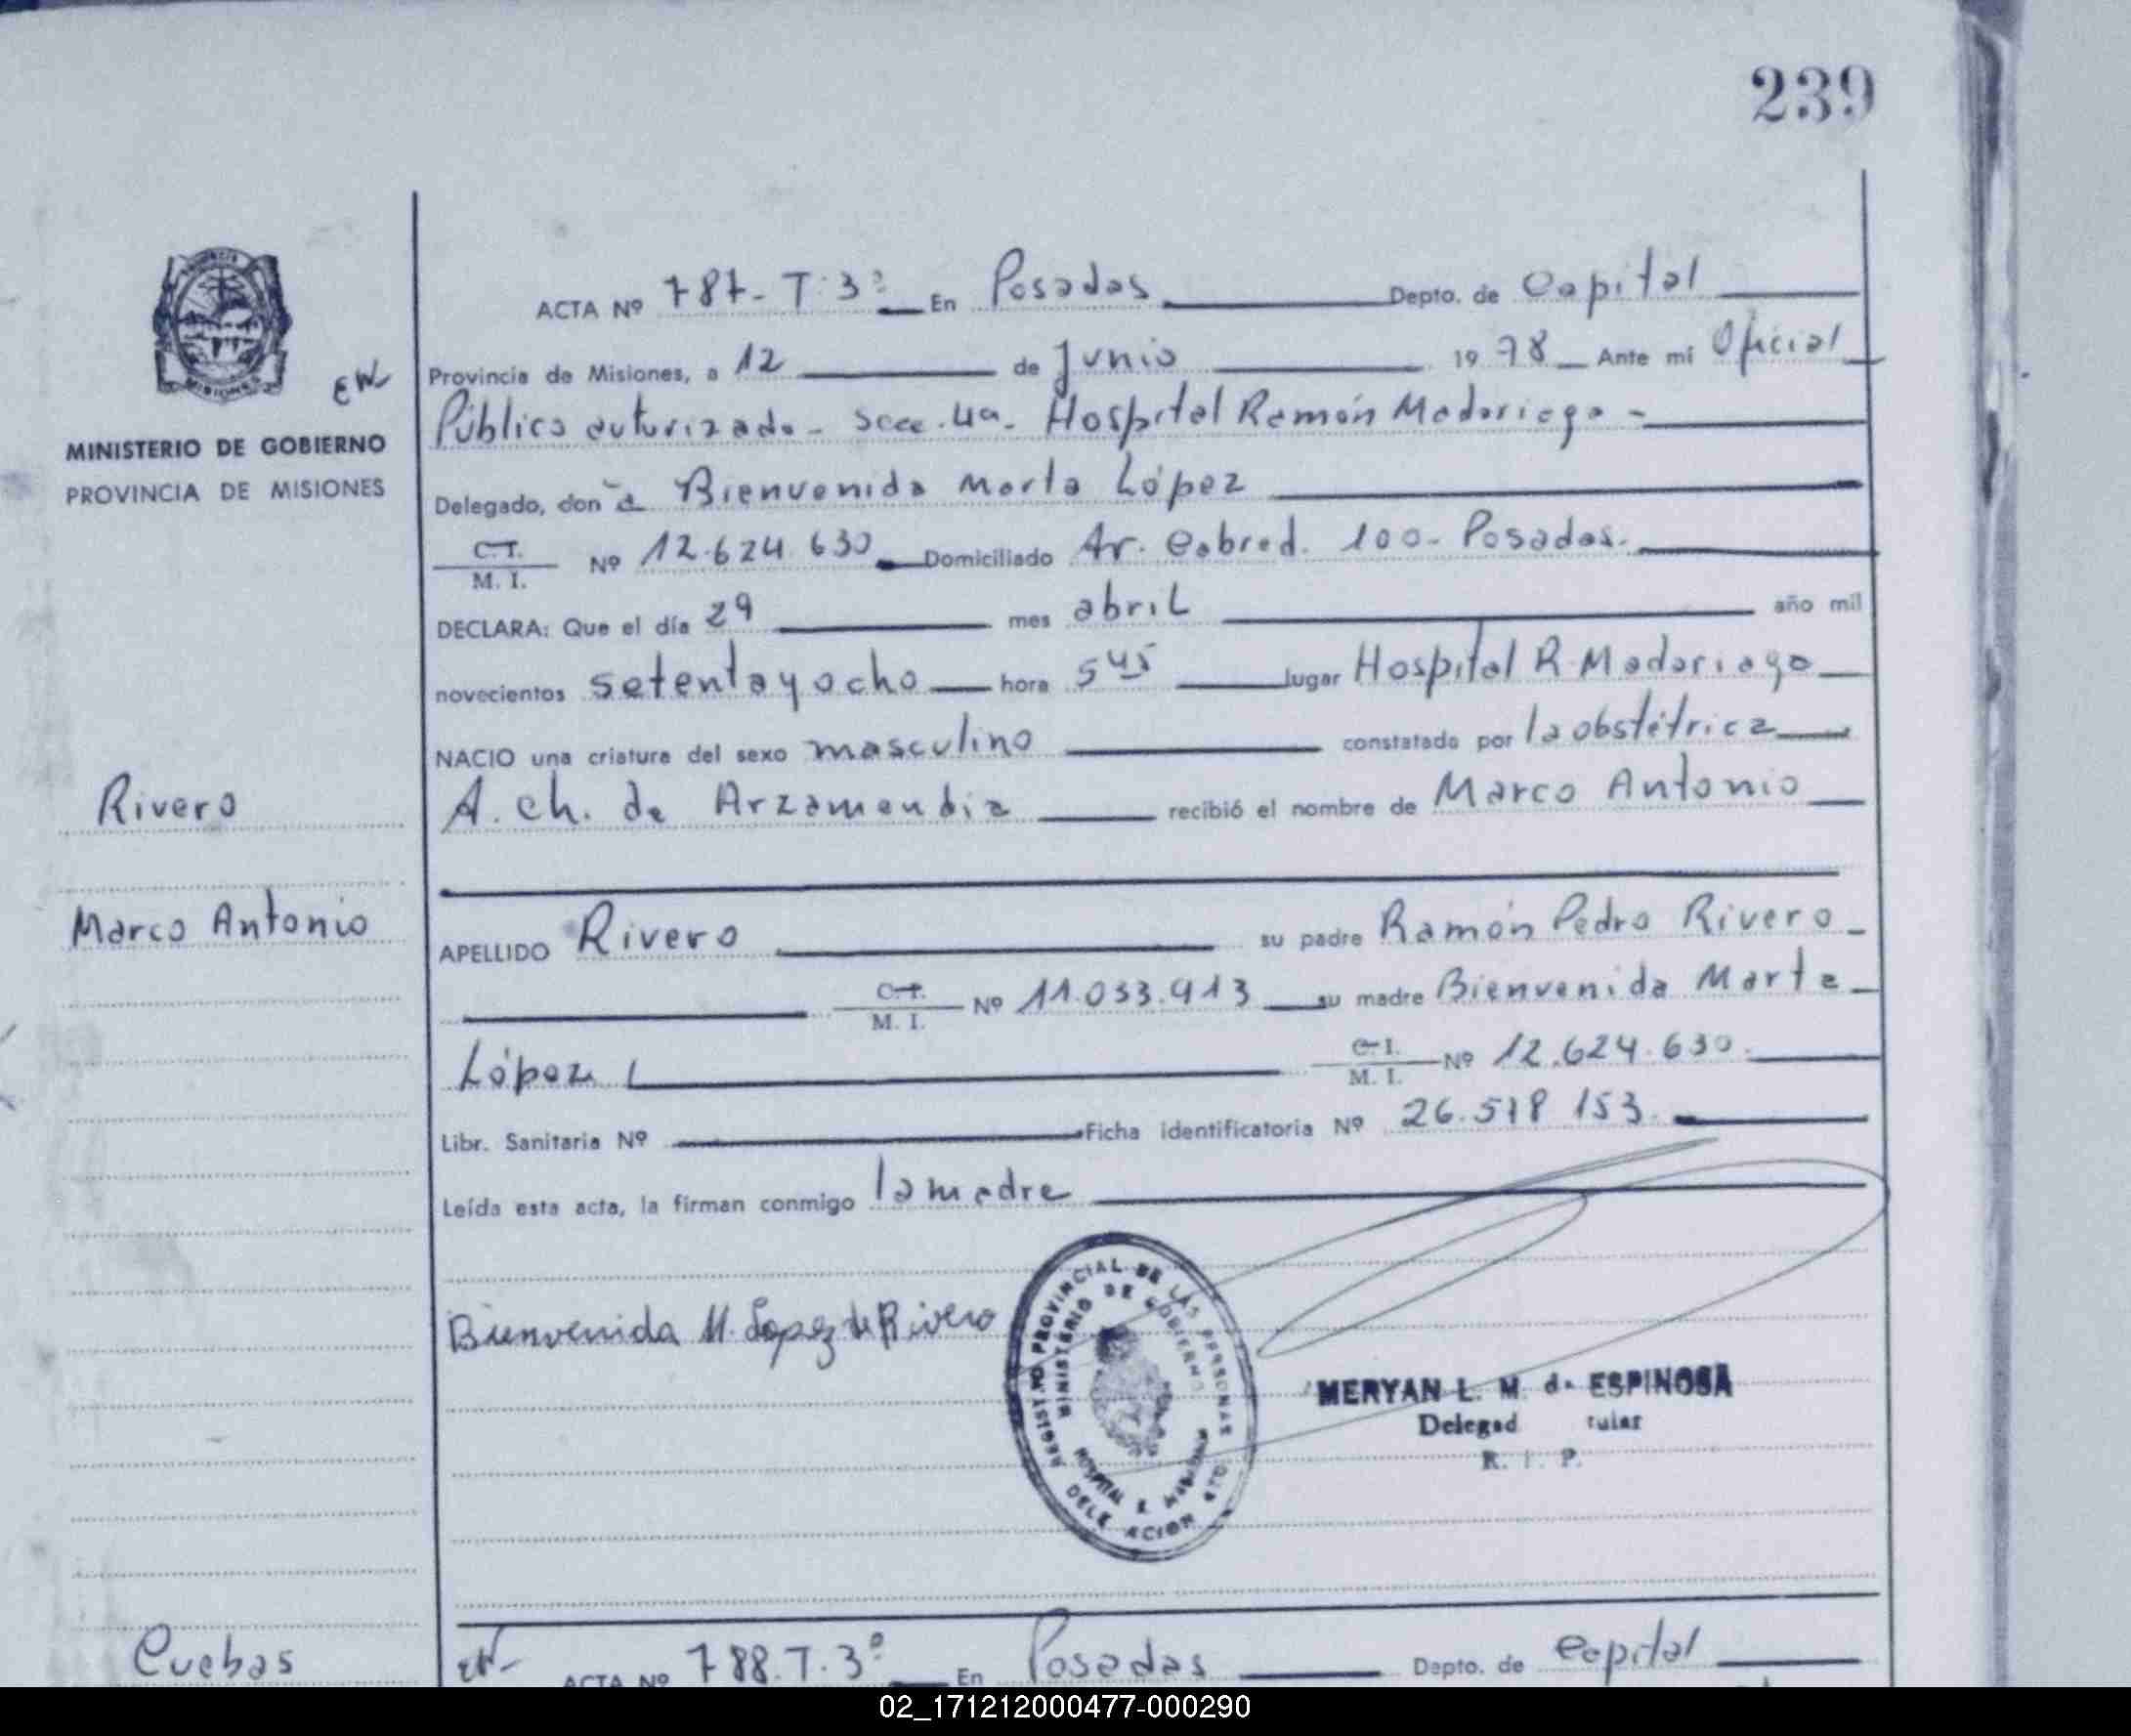 239
ACTA Nº 787-T.3º En Posadas Depto. de Capital
EW
Provincia de Misiones, a 12 de Junio 1978 Ante mí Oficial
Público autorizado - Secc. 4a. Hospital Ramón Madariaga -
MINISTERIO DE GOBIERNO
PROVINCIA DE MISIONES
Delegado, don a Bienvenida Marta López
C.I. M. I. Nº 12.624.630 Domiciliado Av. Cabred. 100- Posadas.
DECLARA: Que el día 29 mes abril año mil
novecientos setenta y ocho hora 5 45 lugar Hospital R. Madariaga
NACIO una criatura del sexo masculino constatado por la obstétrica
Rivero
A. Ch. de Arzamendia recibió el nombre de Marco Antonio
Marco Antonio
APELLIDO Rivero su padre Ramón Pedro Rivero -
C.I. M. I. Nº 11.033.913 su madre Bienvenida Marta
López C.I. M. I. Nº 12.624.630.
Libr. Sanitaria Nº Ficha identificatoria Nº 26.518 153.
Leída esta acta, la firman conmigo la madre
Bienvenida M. Lopez de Rivero
REGISTRO PROVINCIAL DE LAS PERSONAS
MINISTERIO DE GOBIERNO
HOSPITAL
MERYAN L. M. de ESPINOSA
Delegad tular
R. P.
Cuebas
EW
ACTA Nº 788.T.3º En Posadas Depto. de Capital
02_171212000477-000290